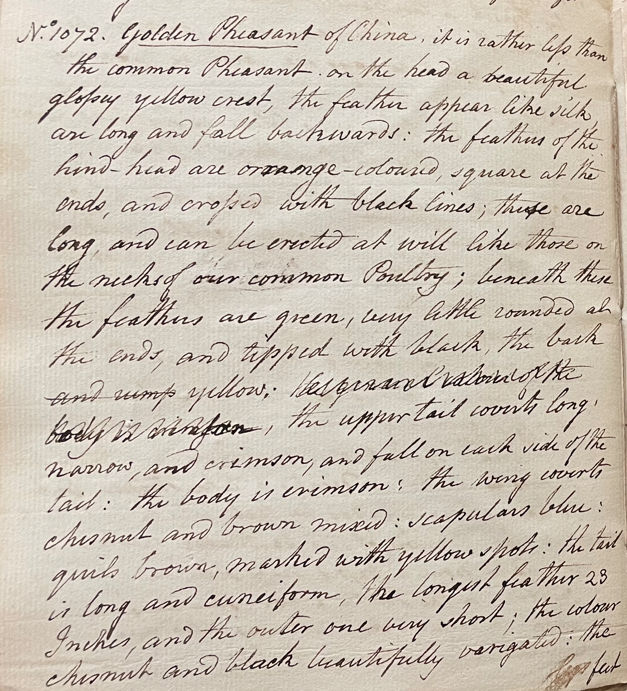 No. 1072. Golden Pheasant of China. it is rather less than
the common Pheasant. on the head a beautiful
glossy yellow crest, the feather appear like silk
are long and fall backwards: the feathers of the
hind-head are orange-coloured, square at the
ends, and crossed with black lines; these are
long, and can be erected at will like those on
the necks of our common Poultry; beneath these
the feathers are green, very little rounded at
the ends, and tipped with black, the back
and rump yellow: of the
body is crimson, the upper tail coverts long.
narrow, and crimson, and fall on each side of the
tail: the body is crimson: the wing coverts
chesnut and brown mixed: scapulars blue:
quils brown, marked with yellow spots: the tail
is long and cuneiform, the longest feather 23
Inches, and the outer one very short; the colour
chesnut and black beautifully varigated: the
feet